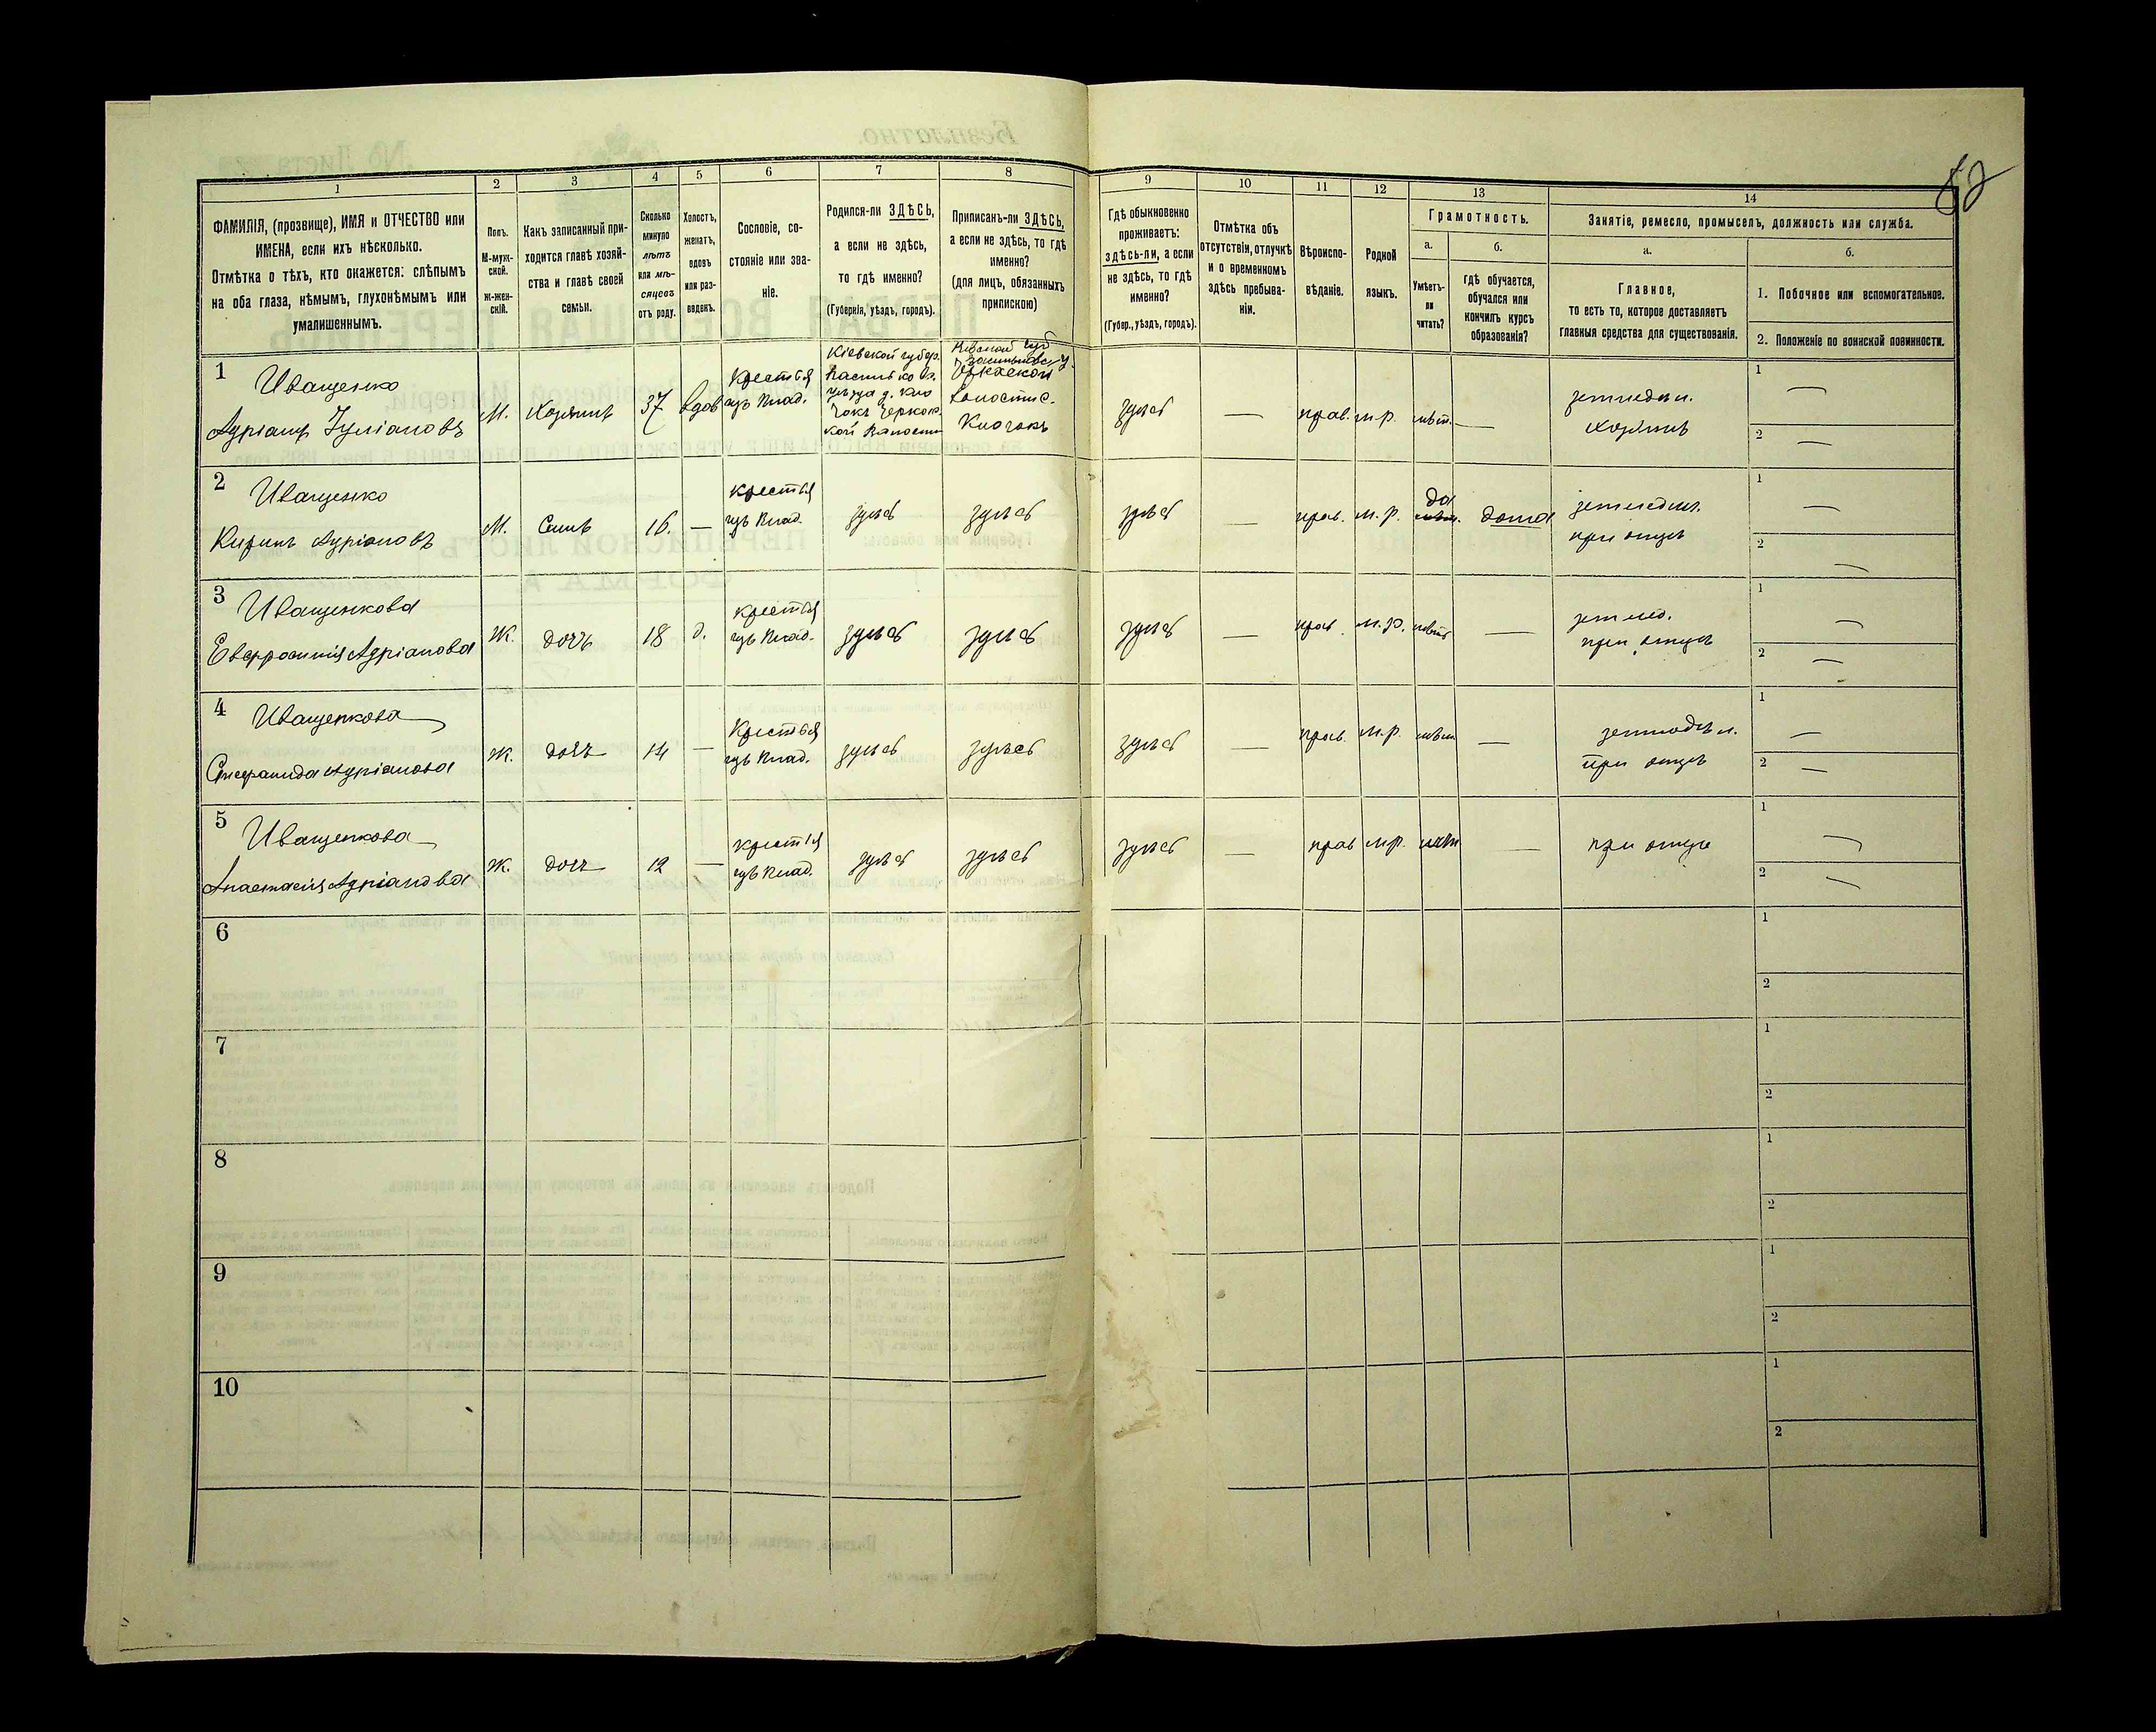 62
1 2 3 4 5 6 7 8 9 10 11 12 13 14
ФАМИЛІЯ, (прозвище), ИМЯ и ОТЧЕСТВО или
ИМЕНА, если ихъ нѣсколько.
Отмѣтка о тѣхъ, кто окажется: слѣпымъ
на оба глаза, нѣмымъ, глухонѣмымъ или
умалишеннымъ.
Полъ.
М-муж-
ской.
Ж-жен-
скій.
Какъ записанный при-
ходится главѣ хозяй-
ства и главѣ своей
семьи.
Сколько
минуло
лѣтъ
или мѣ-
сяцевъ
отъ роду.
Холостъ,
женатъ,
вдовъ
или раз-
веденъ.
Сословіе, со-
стояніе или зва-
ніе.
Родился-ли ЗДѢСЬ,
а если не здѣсь,
то гдѣ именно?
(Губернія, уѣздъ, городъ).
Приписанъ-ли ЗДѢСЬ,
а если не здѣсь, то гдѣ
именно?
(для лицъ, обязанныхъ
припискою)
Гдѣ обыкновенно
проживаетъ:
здѣсь-ли, а если
не здѣсь, то гдѣ
именно?
(Губер., уѣздъ, городъ).
Отмѣтка объ
отсутствіи, отлучкѣ
и о временномъ
здѣсь пребыва-
ніи.
Вѣроиспо-
вѣданіе.
Родной
языкъ.
Грамотность.
а.
Умѣетъ-
ли
читать?
б.
гдѣ обучается,
обучался или
кончилъ курсъ
образованія?
Занятіе, ремесло, промыселъ, должность или служба.
а.
Главное,
то есть то, которое доставляетъ
главныя средства для существованія.
б.
1. Побочное или вспомогательное.
2. Положеніе по воинской повинности.
1
Иващенко
Адріанъ Іуліановъ
М.
Хозяинъ
37
вдов
Крестья
изъ Влад.
Кіевской губер.
Василько в.
уѣзда д. Кло
чокъ Черкас.
кой Волости
Кіевской губ
Васильков. у.
Черкаской
Волости с.
Клочокъ
здѣсь
—
прав.
м.р.
нѣт.
—
земледѣл.
хозяинъ
1 —
2 —
2
Иващенко
Кирилъ Адріановъ
М.
Сынъ
16.
—
Крестья
изъ Влад.
здѣсь
здѣсь
здѣсь
—
прав.
м.р.
да
дома
земледѣл.
при отцѣ
1 —
2 —
3
Иващенкова
Евфросинія Адріанова
Ж.
дочь
18
д.
Крестья
изъ Влад.
здѣсь
здѣсь
здѣсь
—
прав.
м.р.
нѣтъ
—
землед.
при отцѣ
1 —
2 —
4
Иващенкова
Степанида Адріанова
Ж.
дочь
14
—
Крестья
изъ Влад.
здѣсь
здѣсь
здѣсь
—
прав.
м.р.
нѣт
—
земледѣл.
при отцѣ
1 —
2 —
5
Иващенкова
Анастасія Адріанова
Ж.
дочь
12
—
Крестья
изъ Влад.
здѣсь
здѣсь
здѣсь
—
прав
м.р.
нѣт
—
при отце
1 —
2 —
6
1
2
7
1
2
8
1
2
9
1
2
10
1
2